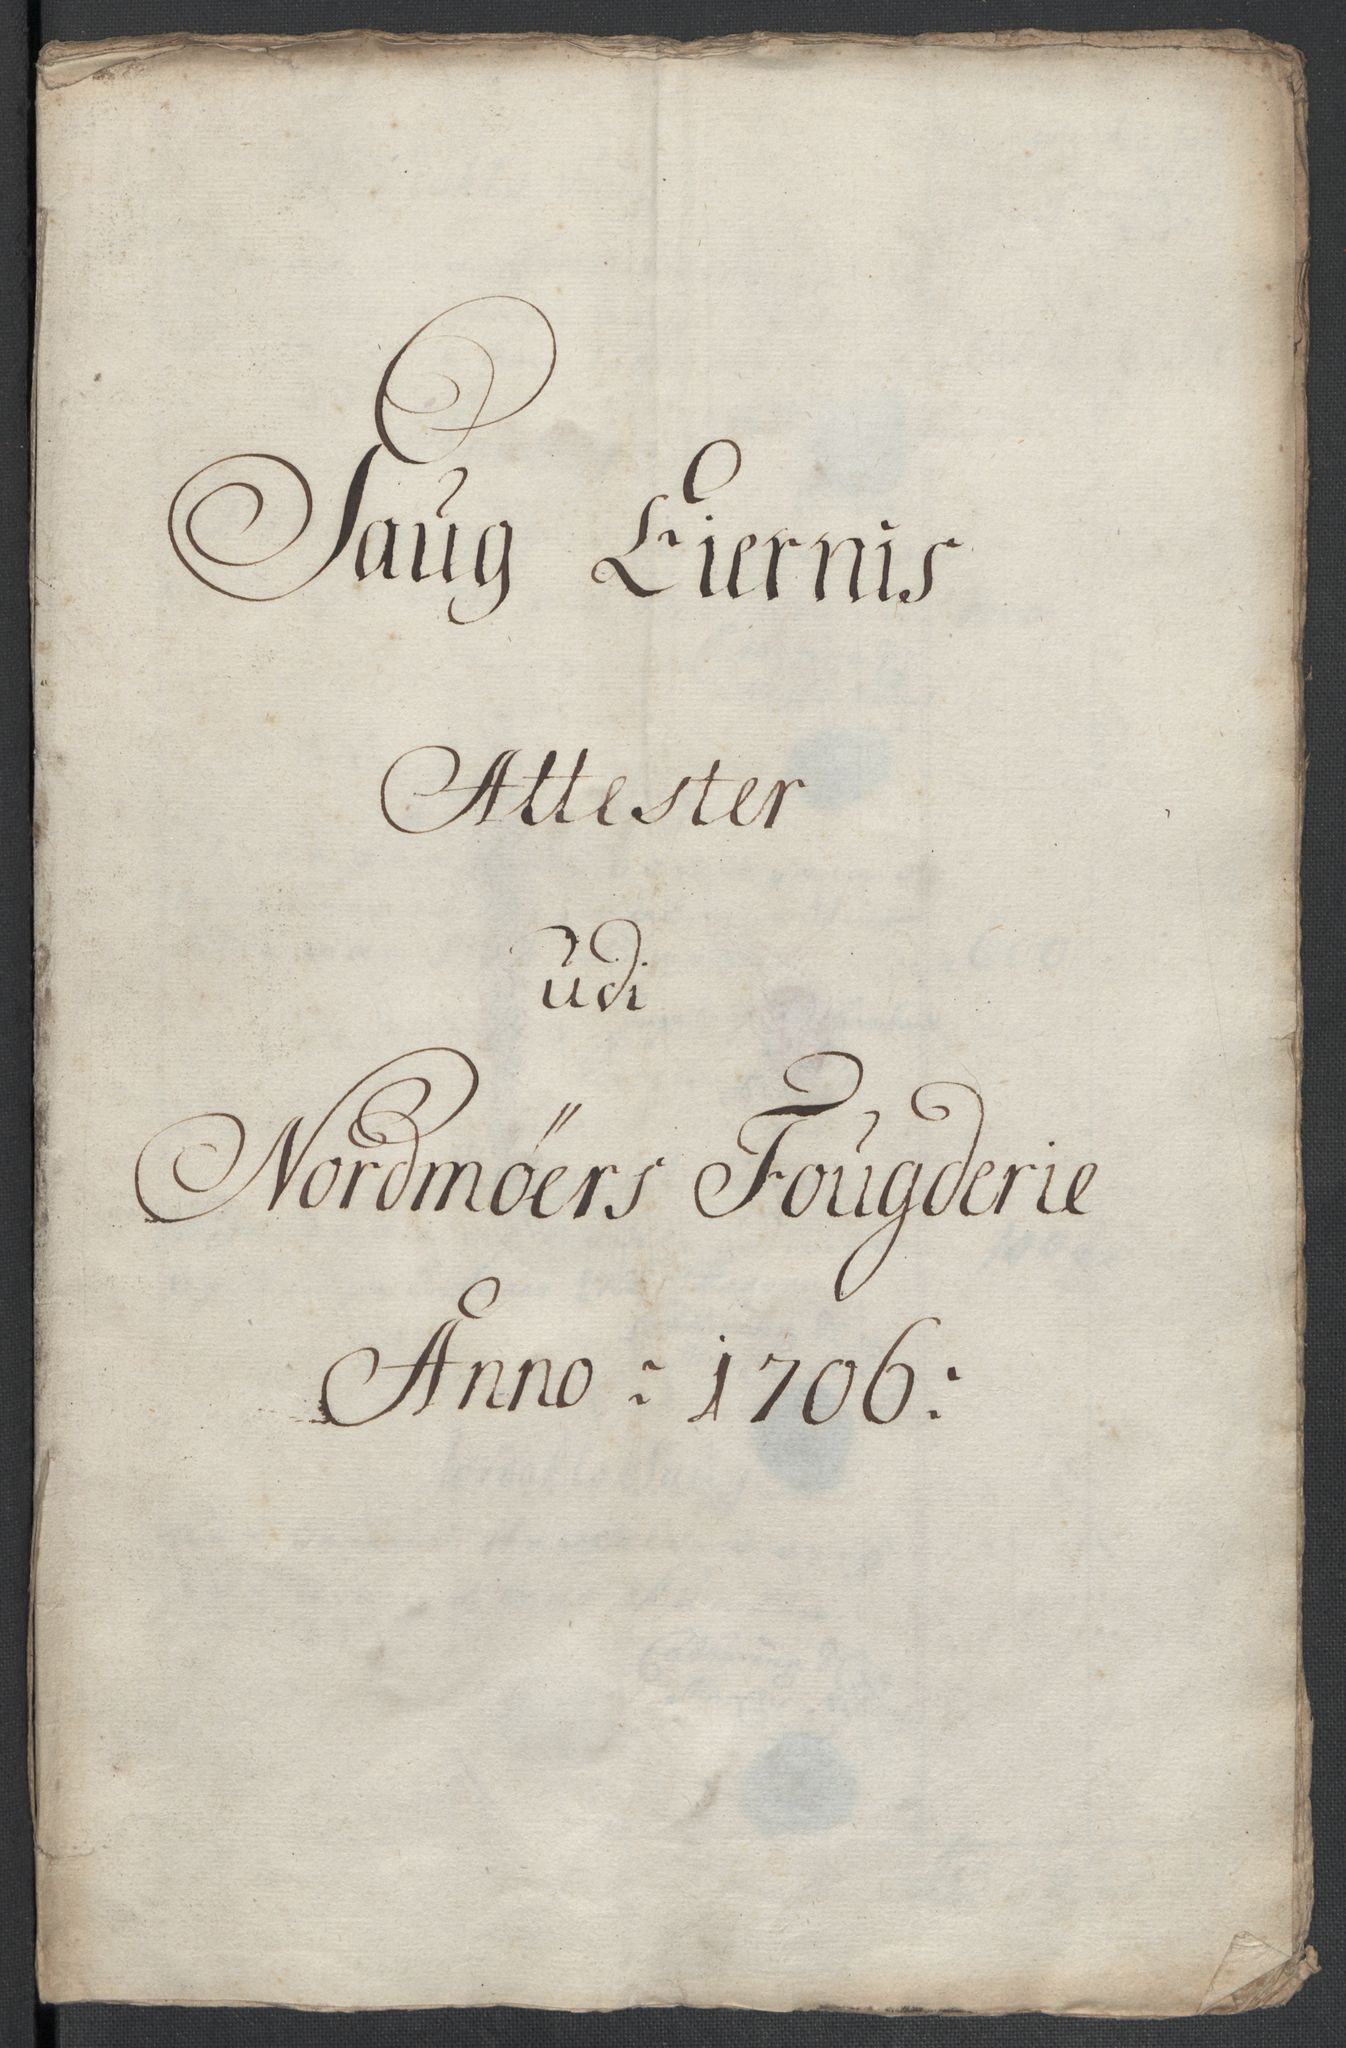 Saug Eiernis
Attester
udi
Nordmöers Fougderie
Anno : 1706 :